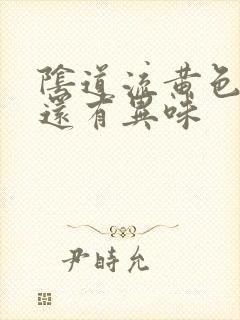 陰道流黃色
還有異味
尹時允